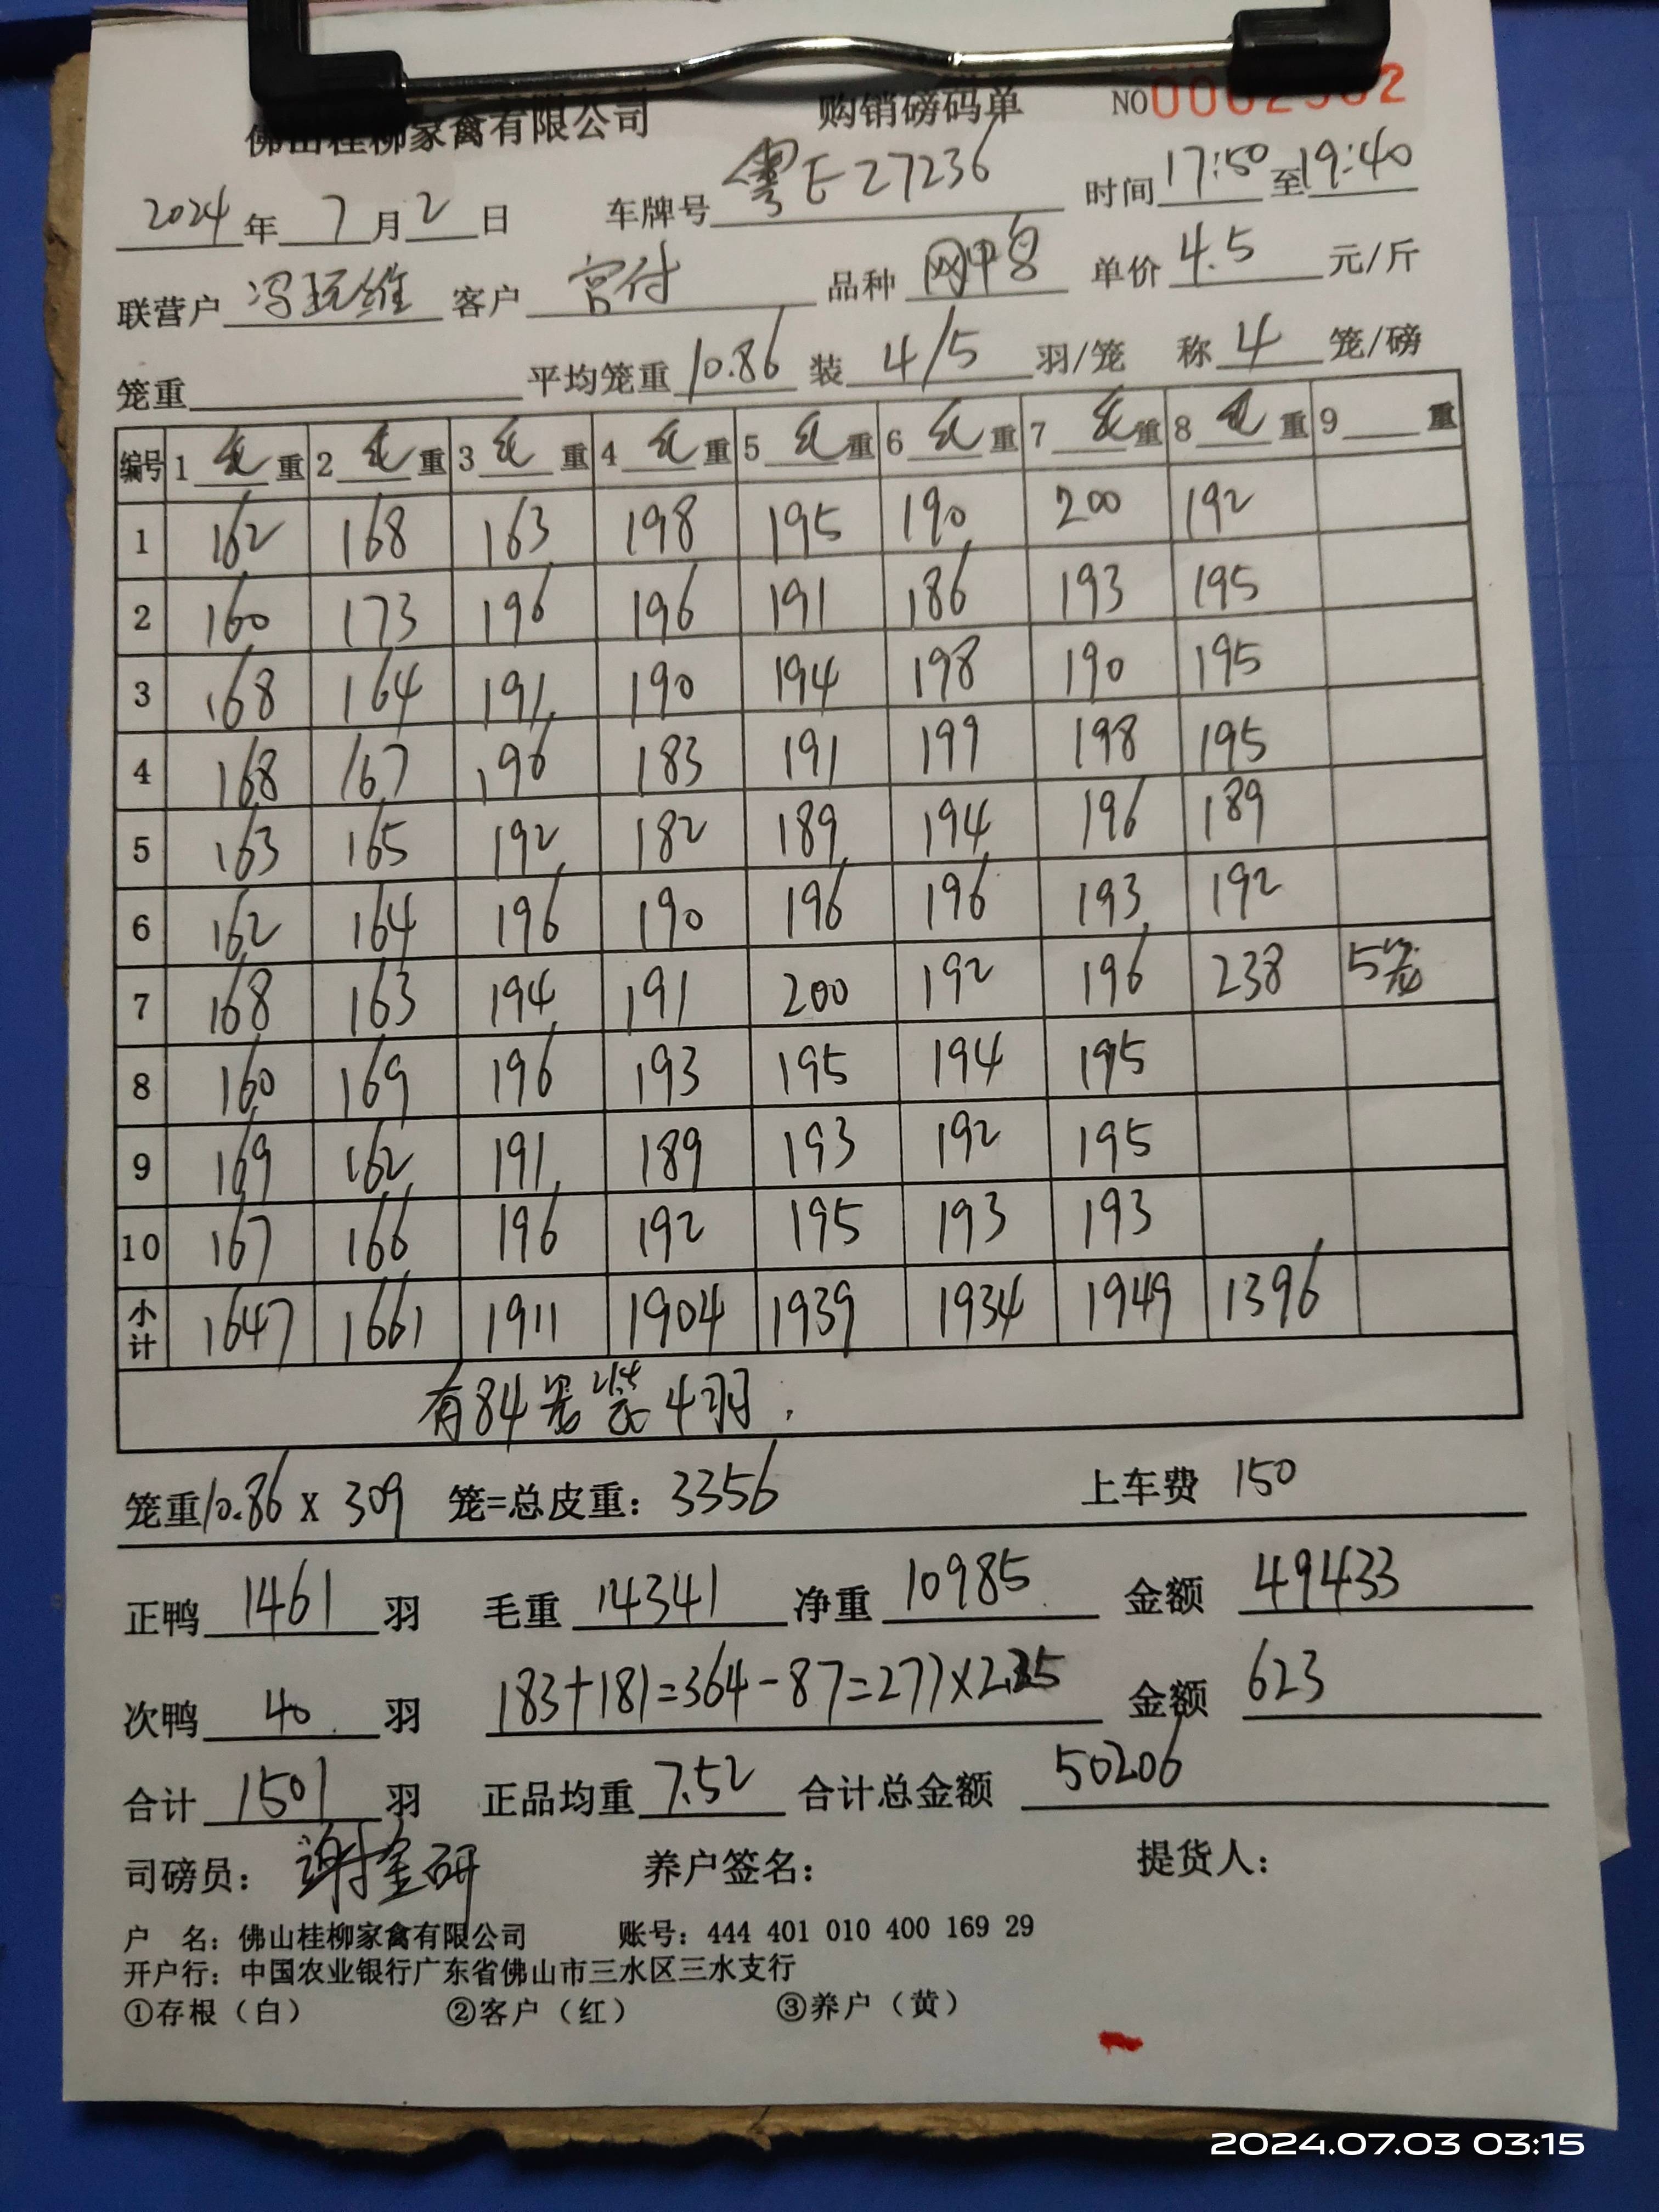 佛山桂柳家禽有限公司 购销磅码单 NO
2024年7月2日 车牌号 粤E27236 时间17:50至19:40
联营户 冯玩维 客户 宫付 品种 单价4.5元/斤
笼重 平均笼重10.86 装4/5羽/笼 称4笼/磅
编号 1毛重 2毛重 3毛重 4毛重 5毛重 6毛重 7毛重 8毛重 9 重
1 162 168 163 198 195 190 200 192
2 160 173 196 196 191 186 193 195
3 168 164 191 190 194 198 190 195
4 168 167 196 183 191 199 198 195
5 163 165 192 182 189 194 196 189
6 162 164 196 190 196 196 193 192
7 168 163 194 191 200 192 196 238 5笼
8 160 169 196 193 195 194 195
9 169 162 191 189 193 192 195
10 167 166 196 192 195 193 193
小计 1647 1661 1911 1904 1939 1934 1949 1396
有84笼装4羽.
笼重10.86 X 309 笼=总皮重: 3356 上车费 150
正鸭 1461 羽 毛重 14341 净重 10985 金额 49433
次鸭 40 羽 183+181=364-87=277×2.25 金额 623
合计 1501 羽 正品均重 7.52 合计总金额 50206
司磅员: 谢 研 养户签名: 提货人:
户 名: 佛山桂柳家禽有限公司 账号: 444 401 010 400 169 29
开户行: 中国农业银行广东省佛山市三水区三水支行
①存根（白） ②客户（红） ③养户（黄）
2024.07.03 03:15